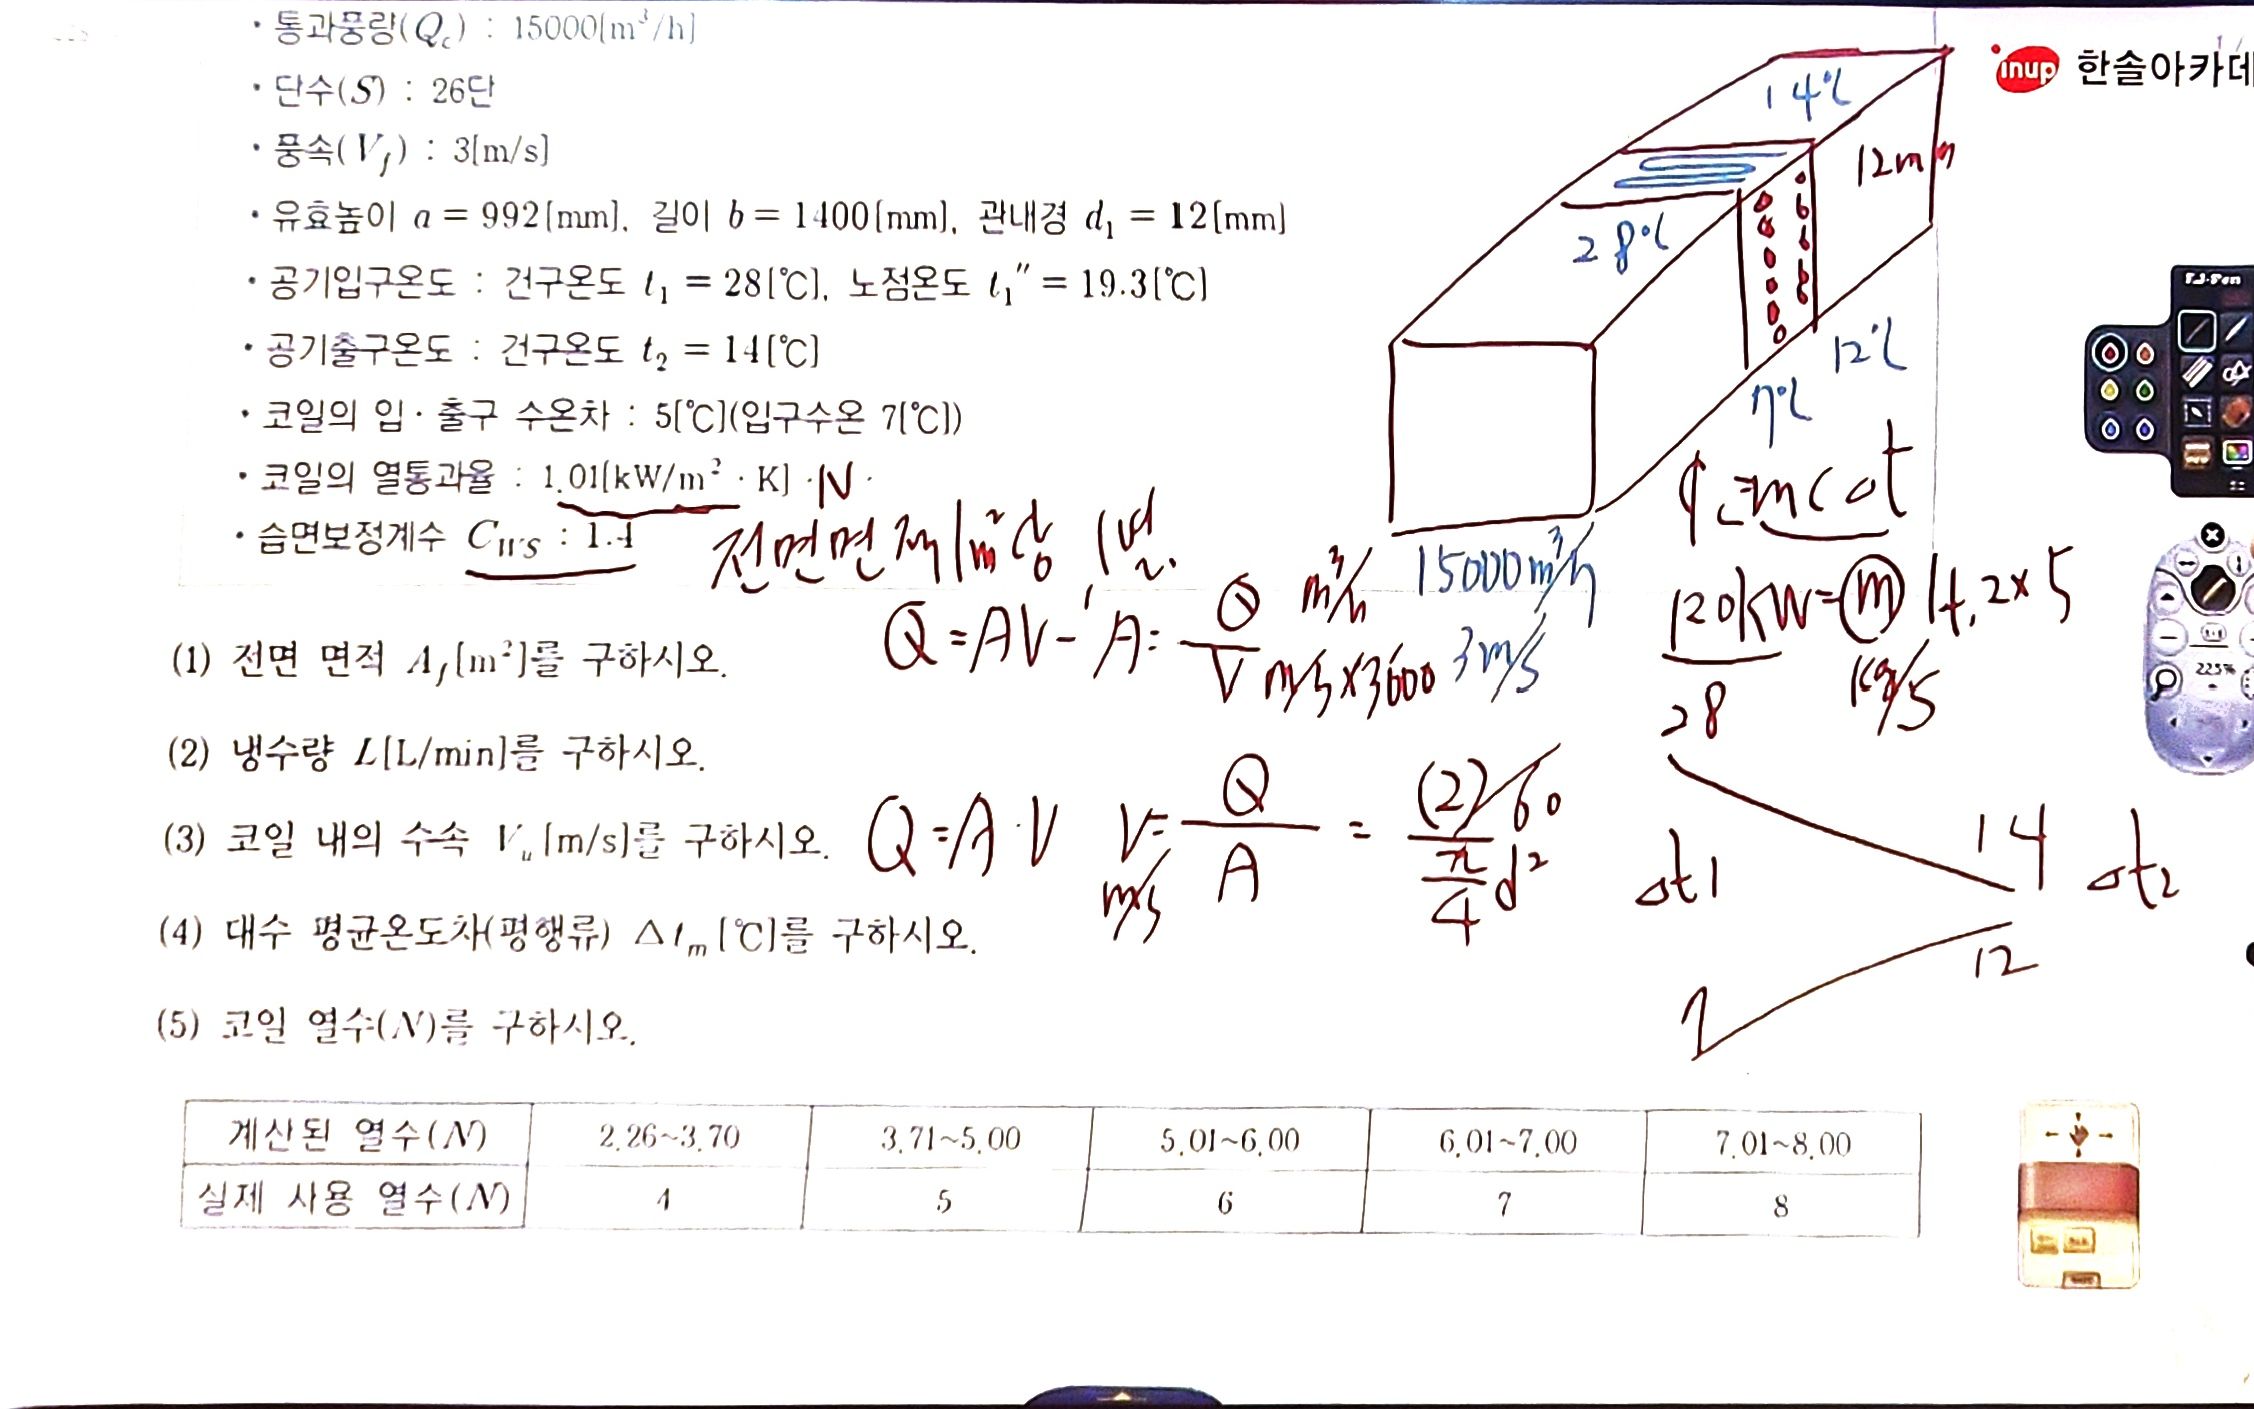 · 통과풍량(Qc) : 15000[m³/h]
inup 한솔아카데
· 단수(S) : 26단
· 풍속(Vf) : 3[m/s]
· 유효높이 a = 992[mm], 길이 b = 1400[mm], 관내경 d₁ = 12[mm]
· 공기입구온도 : 건구온도 t₁ = 28[℃], 노점온도 t₁″ = 19.3[℃]
· 공기출구온도 : 건구온도 t₂ = 14[℃]
· 코일의 입 · 출구 수온차 : 5[℃](입구수온 7[℃])
· 코일의 열통과율 : 1.01[kW/m² · K] · N ·
· 습면보정계수 C_WS : 1.4
전면면적 1m²당 1열
14℃
28℃
12mm
12℃
7℃
15000m³/h
3m/s
q_c=mcΔt
120kW=m 4.2×5
kg/s
(1) 전면 면적 Af[m²]를 구하시오.
Q=AV- A= Q/V m³/h m/s×3600
(2) 냉수량 L[L/min]를 구하시오.
(3) 코일 내의 수속 Vw[m/s]를 구하시오.
Q=A·V V= Q/A = (2)/60 / π/4 d²
m/s
(4) 대수 평균온도차(평행류) Δtm[℃]를 구하시오.
28 14
Δt1 Δt2
7 12
(5) 코일 열수(N)를 구하시오.
계산된 열수(N) 2.26~3.70 3.71~5.00 5.01~6.00 6.01~7.00 7.01~8.00
실제 사용 열수(N) 4 5 6 7 8
225%